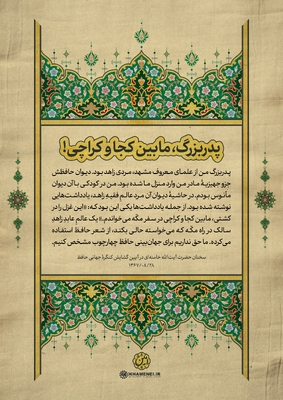 پدربزرگ، مابین کجا و کراچی!
پدربزرگ من از علمای معروف مشهد، مردی زاهد بود. دیوان حافظش
جزو جهیزیهٔ مادر من وارد منزل ما شده بود. من در کودکی با آن دیوان
مأنوس بودم. در حاشیهٔ دیوان آن مرد عالم فقیه زاهد، یادداشت‌هایی
نوشته شده بود. از جمله یادداشت‌ها یکی این بود که: «این غزل را در
کشتی، مابین کجا و کراچی در سفر مکه می‌خواندم.» یک عالم عابدِ زاهدِ
سالک در راه مکه که می‌خواسته حالی بکند، از شعر حافظ استفاده
می‌کرده. ما حق نداریم برای جهان‌بینی حافظ چهارچوب مشخص کنیم.
سخنان حضرت آیت‌الله خامنه‌ای در آیین گشایش کنگرهٔ جهانی حافظ
۱۳۶۷/۰۸/۲۸
KHAMENEI.IR